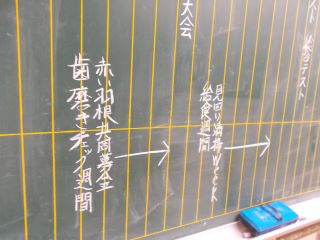 テスト
大会
見回り清掃Week
給食週間
赤い羽根共同募金
歯磨きチェック週間